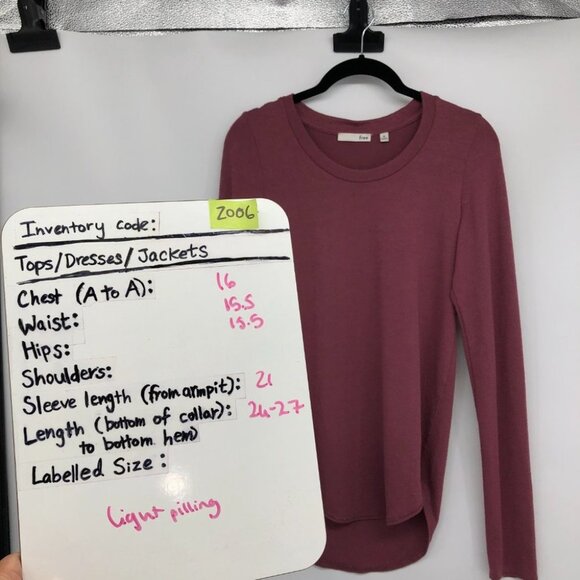 Inventory code: 2006
Tops/Dresses/Jackets
Chest (A to A): 16
Waist: 15.5
Hips: 15.5
Shoulders:
Sleeve length (from armpit): 21
Length (bottom of collar): 24-27
to bottom hem)
Labelled Size:
Light pilling
free